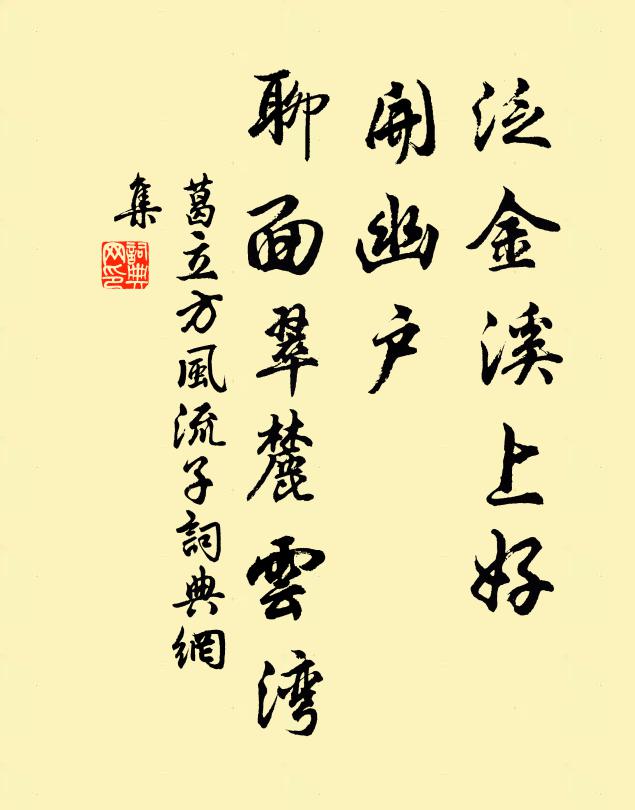 泛金溪上好
開幽户
聊面翠麓雲湾
葛立方風流子詞典網
集
詞典网印